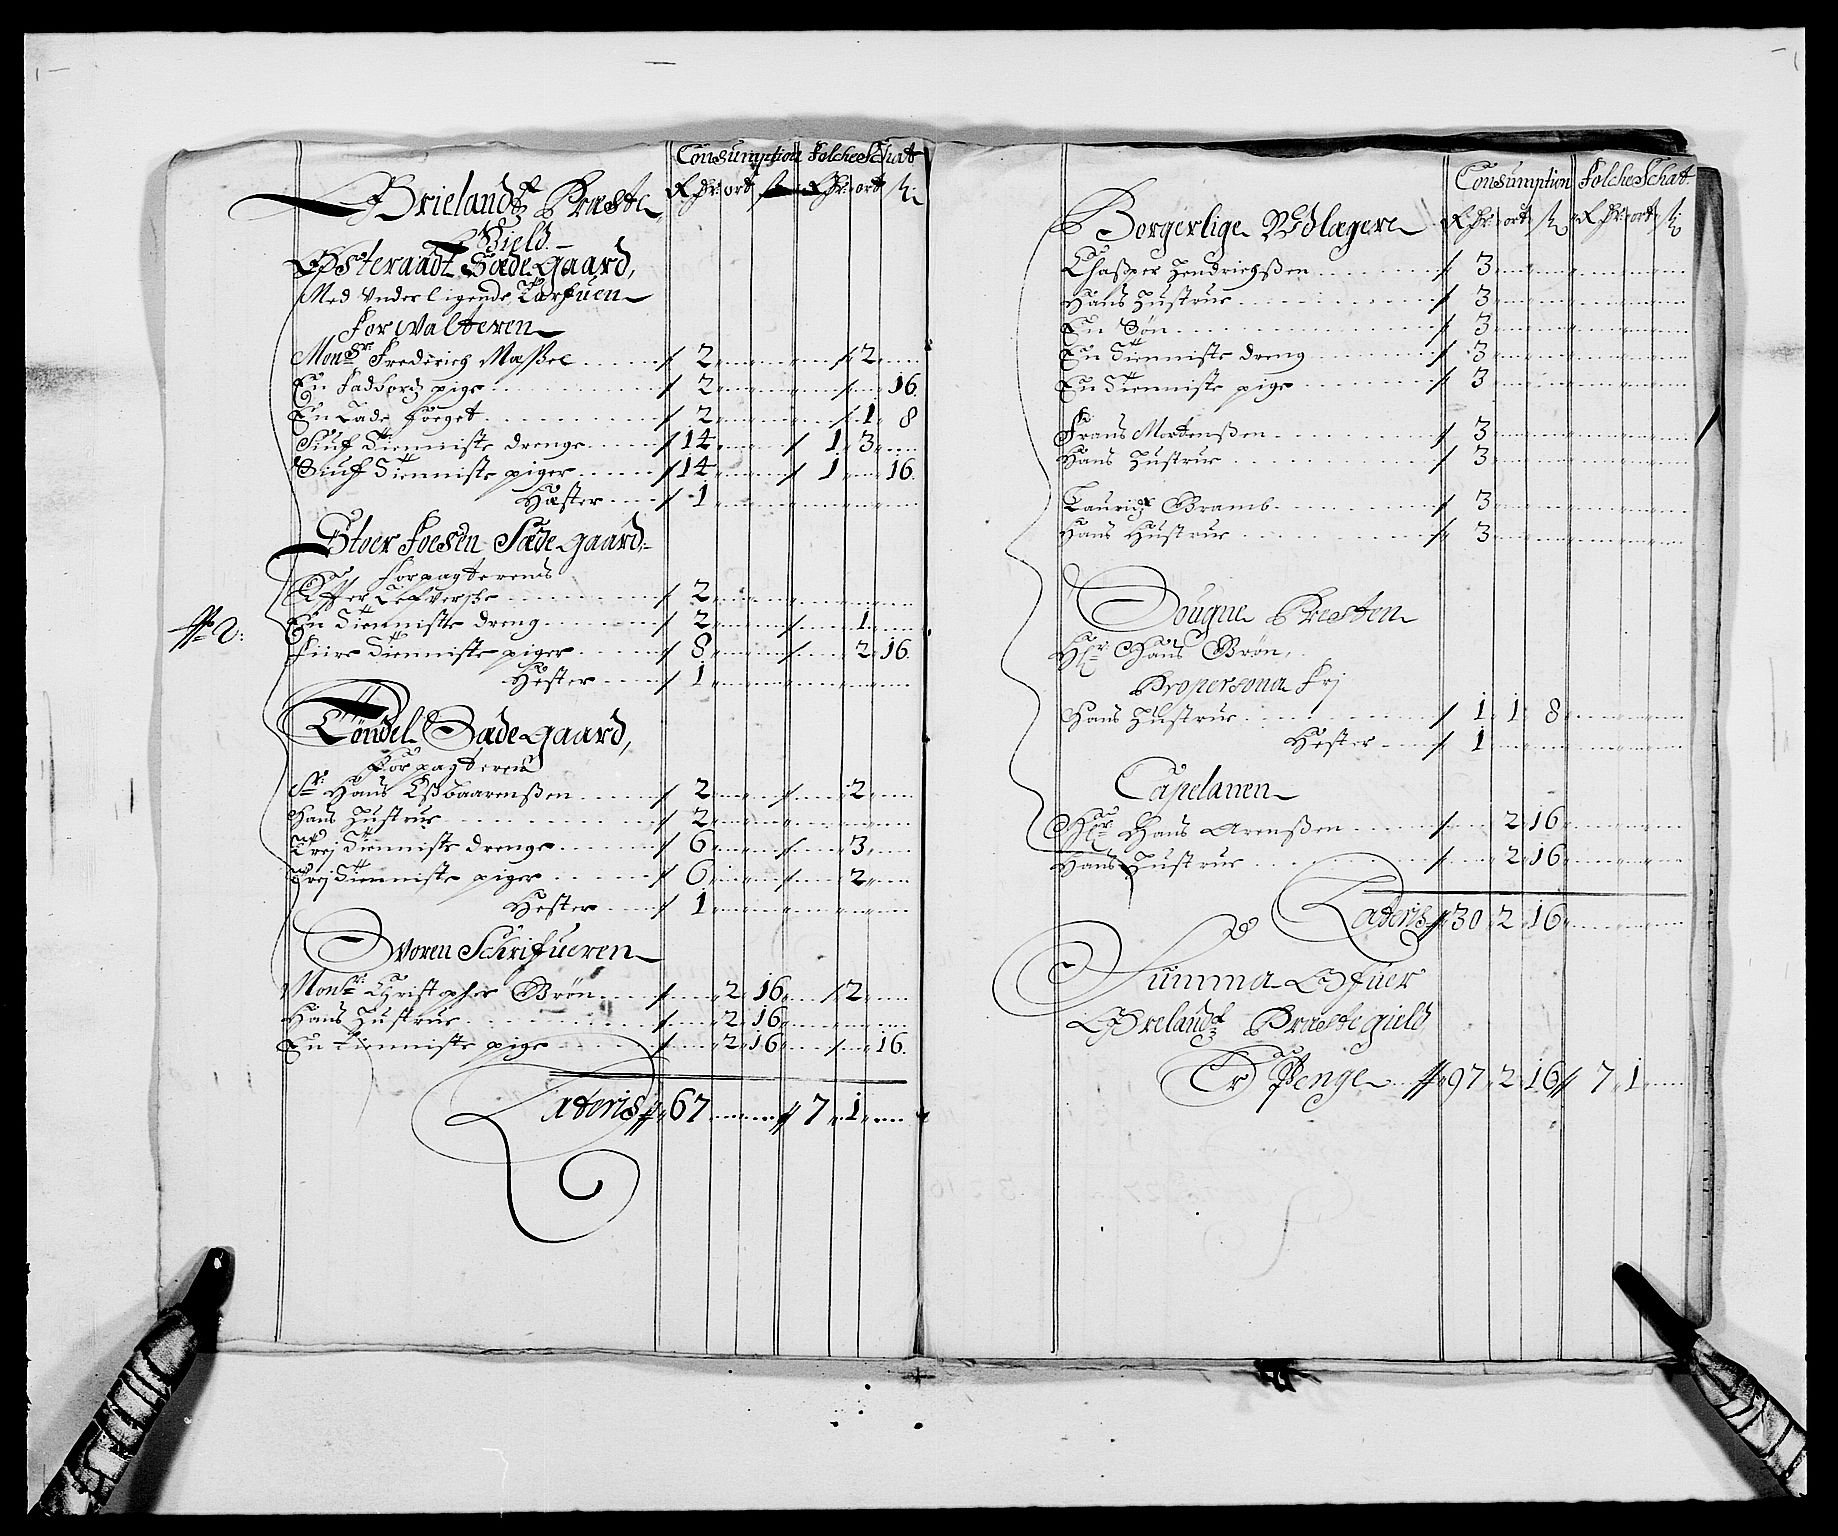 Consumption Folche Schat
Ørielandtz Præste Rdr ort s Rdr ort s
Gield
Østeraadt Sæde Gaard,
Med Underligende Torfuen
Forwalteren
Monsr Frederich 2 2
En pige 2 16
En Lade foeget 2 1 8
Siuf Tienniste drenge 14 1 3
Siuf Tienniste piger 14 1 16
Hæster 1
Stoer Foesen Sæde gaard
Forpagterens
Efter Lefversche 2
No 2:
En Tienniste dreng 2 1
Fiire Tienniste piger 8 2 16
Hester 1
Tøndel Sæde Gaard,
Forpagteren
Sr Hans Esbaarenßen 2 2
Hans Hustrue 2
Trej Tienniste drenge 6 3
Trej Tienniste piger 6 2
Hester 1
Sworen Schrifueren
Monsr Christopher Grøn 2 16 2
Hans Hustrue 2 16
En tienniste pige 2 16 16
Lateris 67 7 1
Consumption Folche Schat
Borgerlige Wdlægere Rdr ort s Rdr ort s
Chasper Hendrichßen 3
Hans Hustrue 3
En Søn 3
En Tienniste dreng 3
En Tienniste pige 3
Frans Mortenßen 3
Hans Hustrue 3
Lauridz Bramb 3
Hans Hustrue 3
Sougne Presten
Hr Hans Grøn,
Propersona Frj
Hans Hustrue 1 1 8
Hester 1
Capelanen
Hr Hans Arenßen 2 16
Hans Hustrue 2 16
Lateris 30 2 16
Summa Ofuer
Ørelandtz Præstegield
Er Penge 97 2 16 7 1